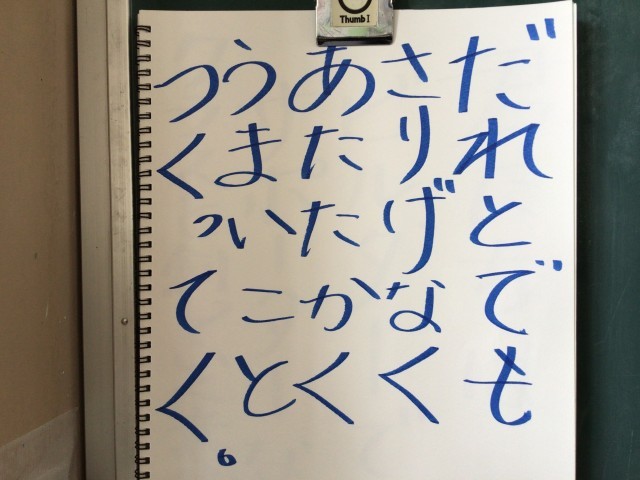 Thumb I
だれとでも
さりげなく
あたたかく
うまいこと
つくってく。